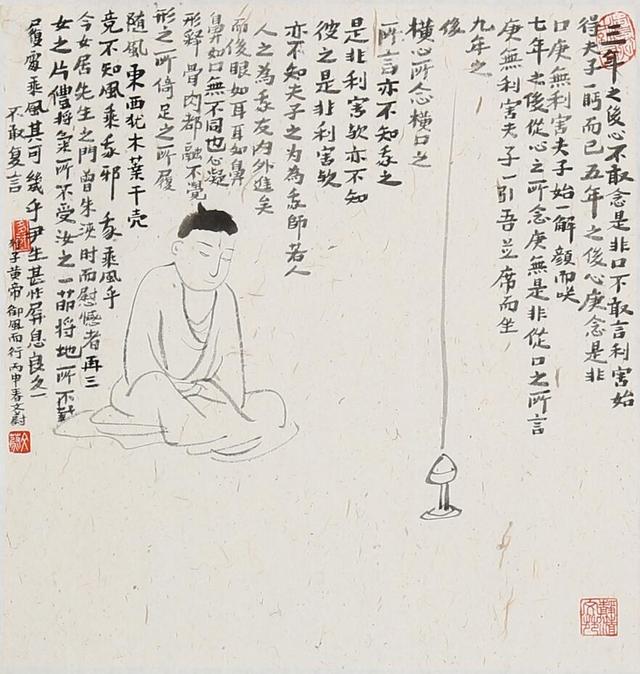 三年之後心不敢念是非口不敢言利害始
得夫子一眄而已五年之後心庚念是非
口庚無利害夫子始一解顏而咲
七年之後從心之所念庚無是非從口之所言
庚無利害夫子一引吾並席而坐
九年之
後
橫心所念橫口之
所言亦不知我之
是非利害歟亦不知
彼之是非利害歟
亦不知夫子之为為我師若人
人之為我友内外進矣
而後眼如耳耳如鼻
鼻如口無不同也心凝
形释骨肉都融不覺
形之所倚足之所履
随風東西犹木葉干壳
竟不知風乘我邪我乘風乎
今女居先生之門曾未浹时而慰憾者再三
女之片體将氣所不受汝之一節将地所不載
履虚乘風其可幾乎尹生甚怍屏息良久一
不敢复言
列子黄帝御風而行丙申春文尉